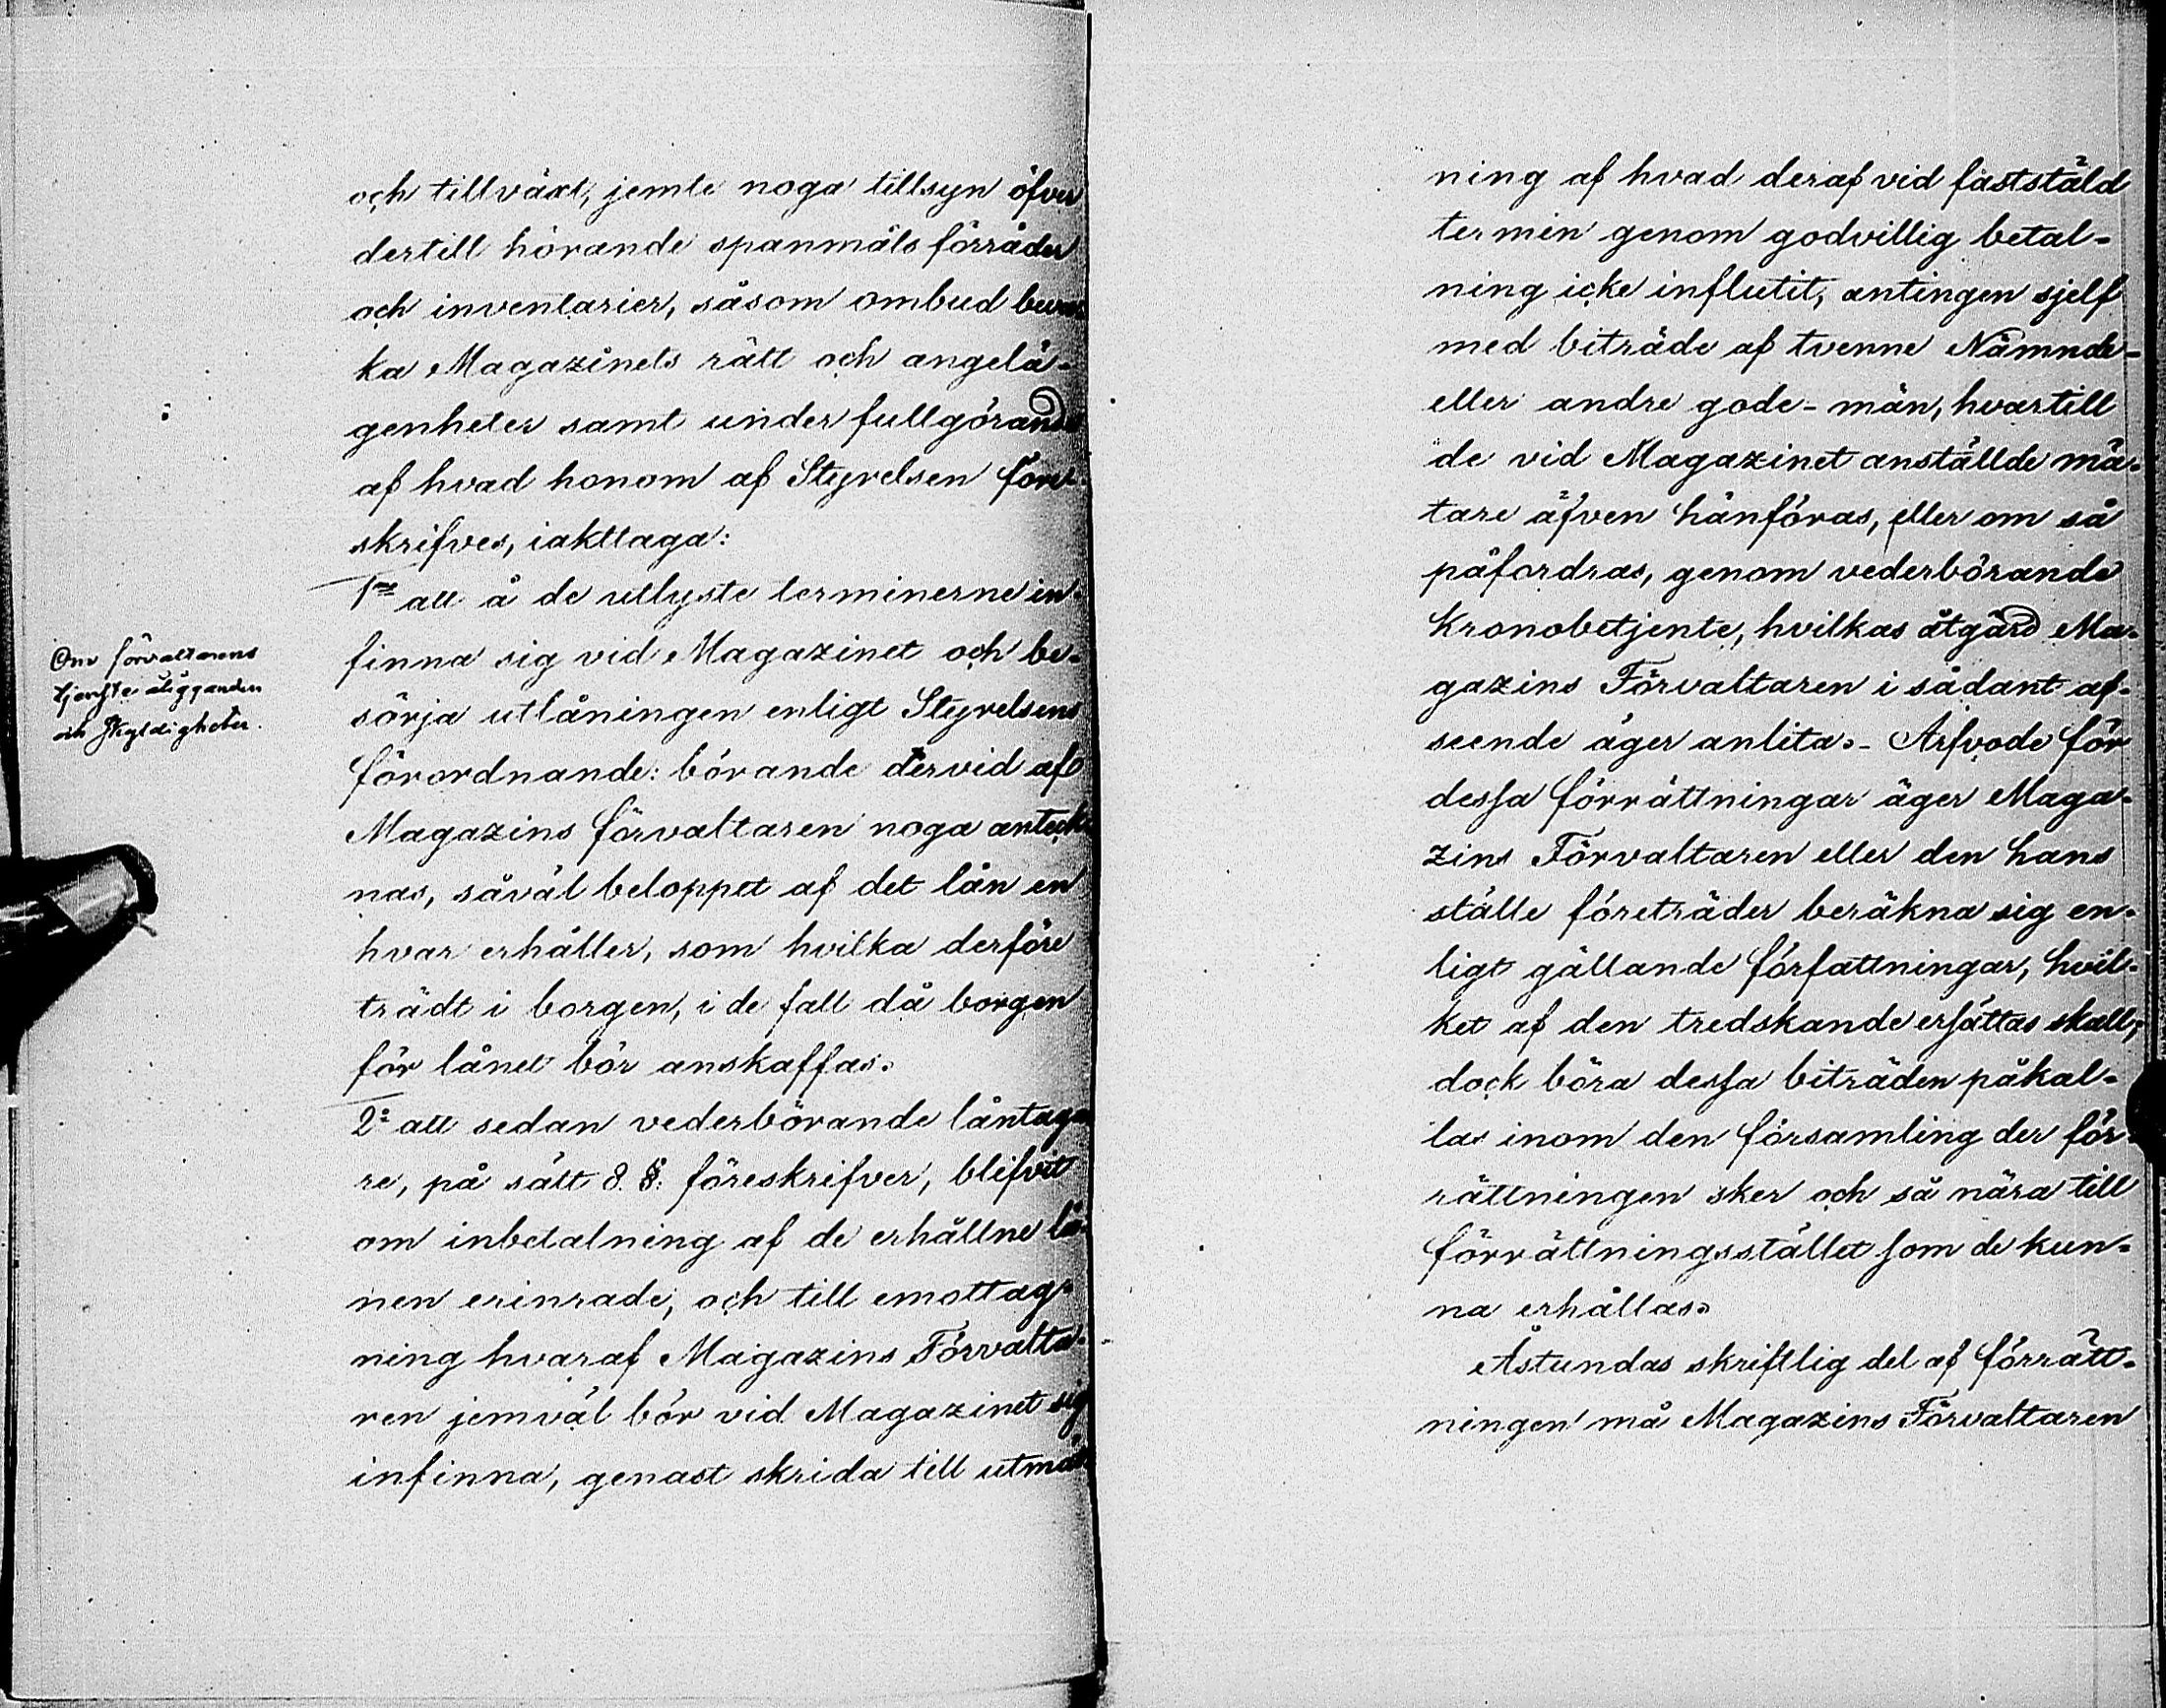 och tillväxt, jemte noga tillsyn öfver
dertill hörande spanmåls förråder
och inventarier, såsom ombud beva-
ka Magazinets rätt och angelä-
genheter samt under fullgörande
af hvad honom af Styrelsen före-
skrifves, iakttaga:
1mo att å de utlyste terminerne in-
finna sig vid Magazinet och be-
sörja utlåningen enligt Styrelsens
förordnande: börande dervid af
Magazins förvaltaren noga anteck-
nas, såväl beloppet af det lån en
hvar erhåller, som hvilka derföre
trädt i borgen, i de fall då borgen
för lånet bör anskaffas.
2o att sedan vederbörande låntaga-
re, på sätt 8. §. föreskrifver, blifvit
om inbetalning af de erhållne lå-
nen erinrade, och till emottag-
ning hvaraf Magazins Förvalta-
ren jemväl bör vid Magazinet sig
infinna, genast skrida till utmät-
Om förvaltarens
tjenste åligganden
och skyldigheter.
ning af hvad deraf vid fastställd
termin genom godvillig betal-
ning icke influtit, antingen sjelf
med biträde af tvenne Nämnde-
eller andre gode-män, hvartill
de vid Magazinet anställde mä-
tare äfven hänföras, eller om så
påfordras, genom vederbörande
Kronobetjente, hvilkas åtgärd Ma-
gazins Förvaltaren i sådant af-
seende äger anlita. - Arfvode för
dessa förrättningar äger Maga-
zins Förvaltaren eller den hans
ställe företräder beräkna sig en-
ligt gällande författningar, hvil-
ket af den tredskande ersättas skall;
dock böra dessa biträden påkal-
las inom den församling der för-
rättningen sker och så nära till
förrättningsstället som de kun-
na erhållas.
Åstundas skriftlig del af förrätt-
ningen må Magazins Förvaltaren